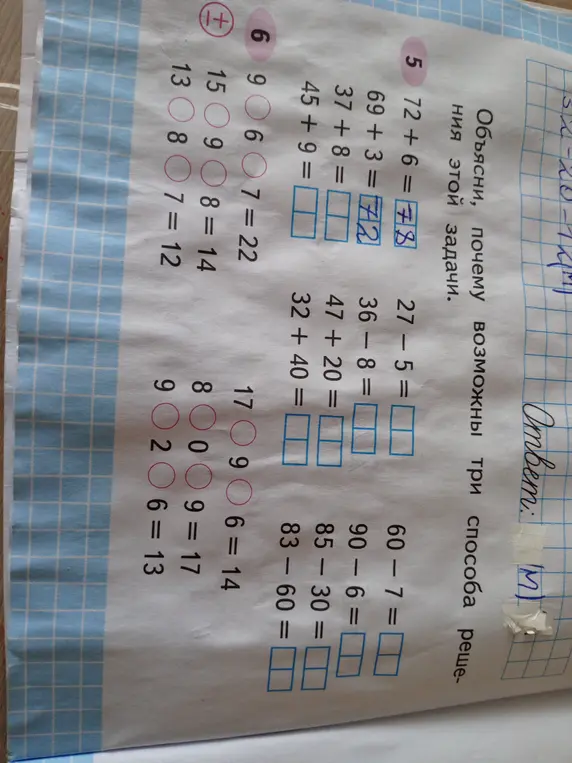 Ответ: (м)
Объясни, почему возможны три способа реше-
ния этой задачи.
5 72 + 6 = 78 27 − 5 = 60 − 7 =
69 + 3 = 72 36 − 8 = 90 − 6 =
37 + 8 = 47 + 20 = 85 − 30 =
45 + 9 = 32 + 40 = 83 − 60 =
6 9 ○ 6 ○ 7 = 22 17 ○ 9 ○ 6 = 14
± 15 ○ 9 ○ 8 = 14 8 ○ 0 ○ 9 = 17
13 ○ 8 ○ 7 = 12 9 ○ 2 ○ 6 = 13